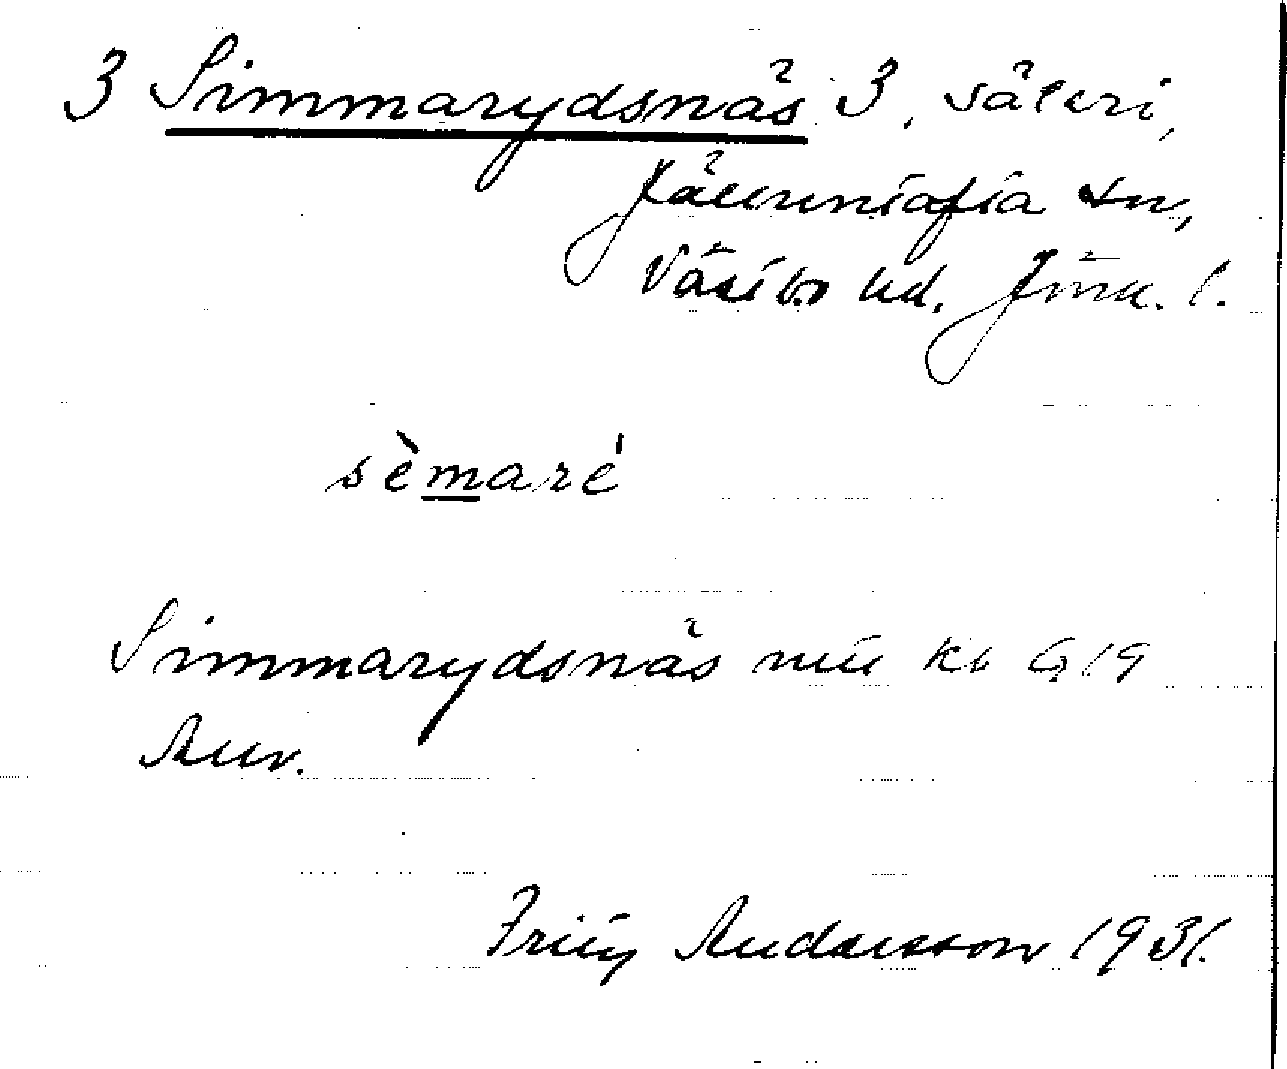 3 Simmarydsnäs 3, säteri,
Jälluntofta sn,
Västbo hd. Jönk. l.
sèmaré
Simmarydsnäs mtl kb G19
Anv.
Fritz Andersson 1931.